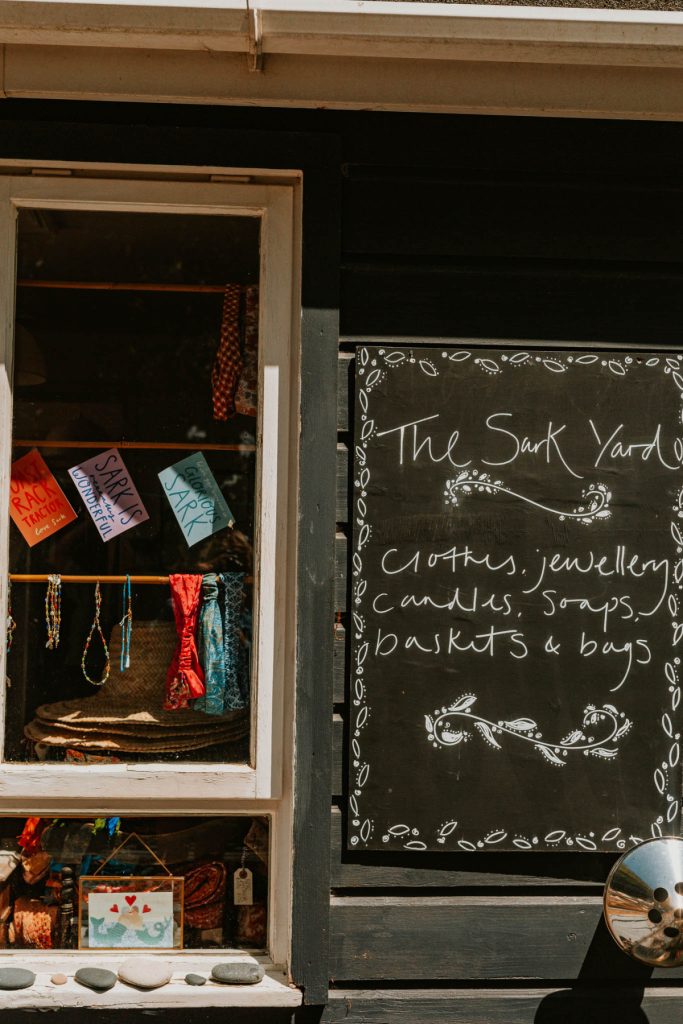 RACK
TRACTOR
Love Sark
SARK IS
WONDERFUL
GLORIOUS
SARK
The Sark Yard
Clothes, jewellery
candles, soaps,
baskets & bags